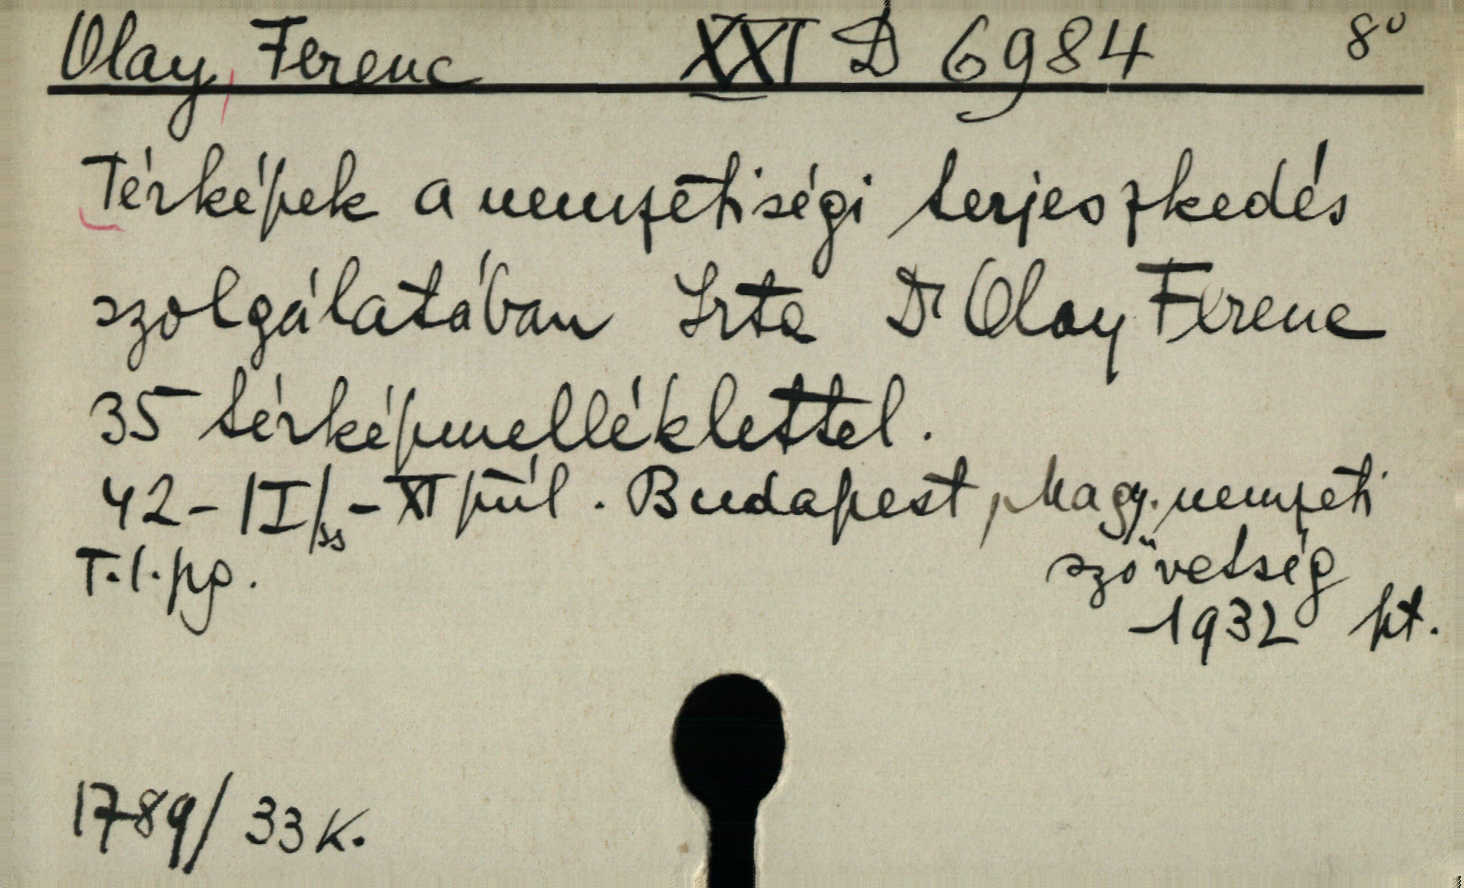 Olay, Ferenc XXI D 6984 8°
Térképek a nemzetiségi terjeszkedés
szolgálatában Irta Dr Olay Ferenc
35 térképmelléklettel.
42- XI púl. Budapest, Magy. nemzeti
T.l.pg. szövetség
1932 kt.
1789/33 K.